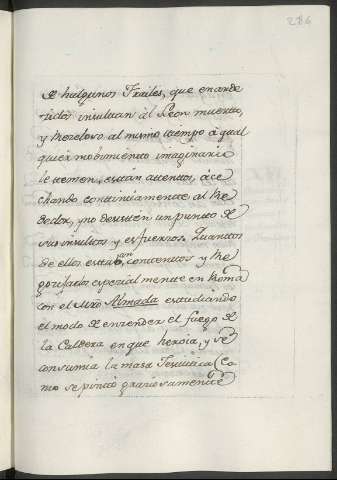 286
de hulgunos Frailes, que enarde
zidos insultan al Leon muerto,
y Rezelosos al mismo tiempo á qual
quier mobimiento imaginario
le temen, están attentos, áce
chando continúamente al Re
dedor, y no desisten un punto de
sus insultos y esfuerzos. Quantos
de ellos estaban contentos y Re
gozijados especialmente en Roma
con el Mro Almada estudiando
el modo de enzender el fuego de
la Caldera en que hervia, y se
consumia la masa Jesuitica (Co
mo se pintó graziosamente